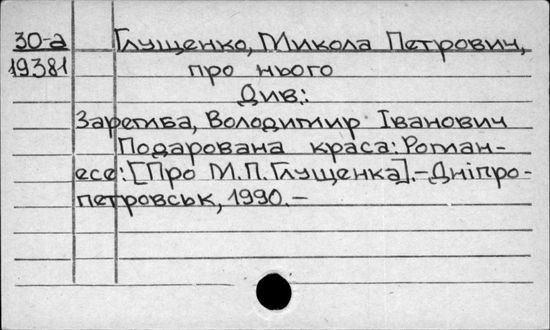 30-а Глущенко, Микола Петрович,
19381 про нього
Див.:
Заремба, Володимир Іванович
Подарована краса: Роман-
есе: [Про М.П. Глущенка]. – Дніпро-
петровськ, 1990. –